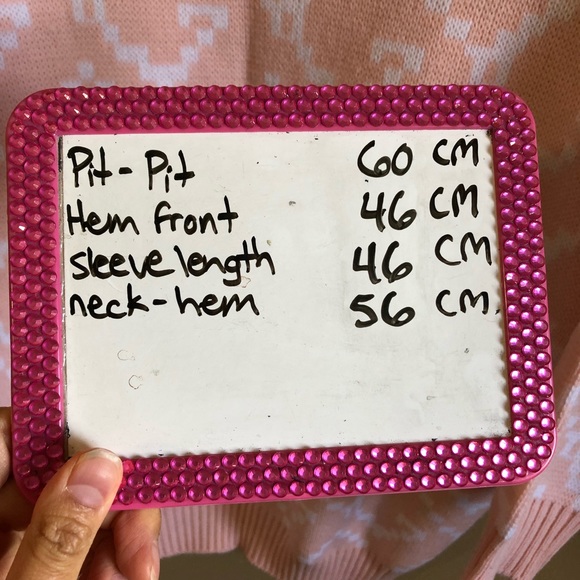 Pit - Pit 60 CM
Hem front 46 CM
sleeve length 46 CM
neck-hem 56 CM.